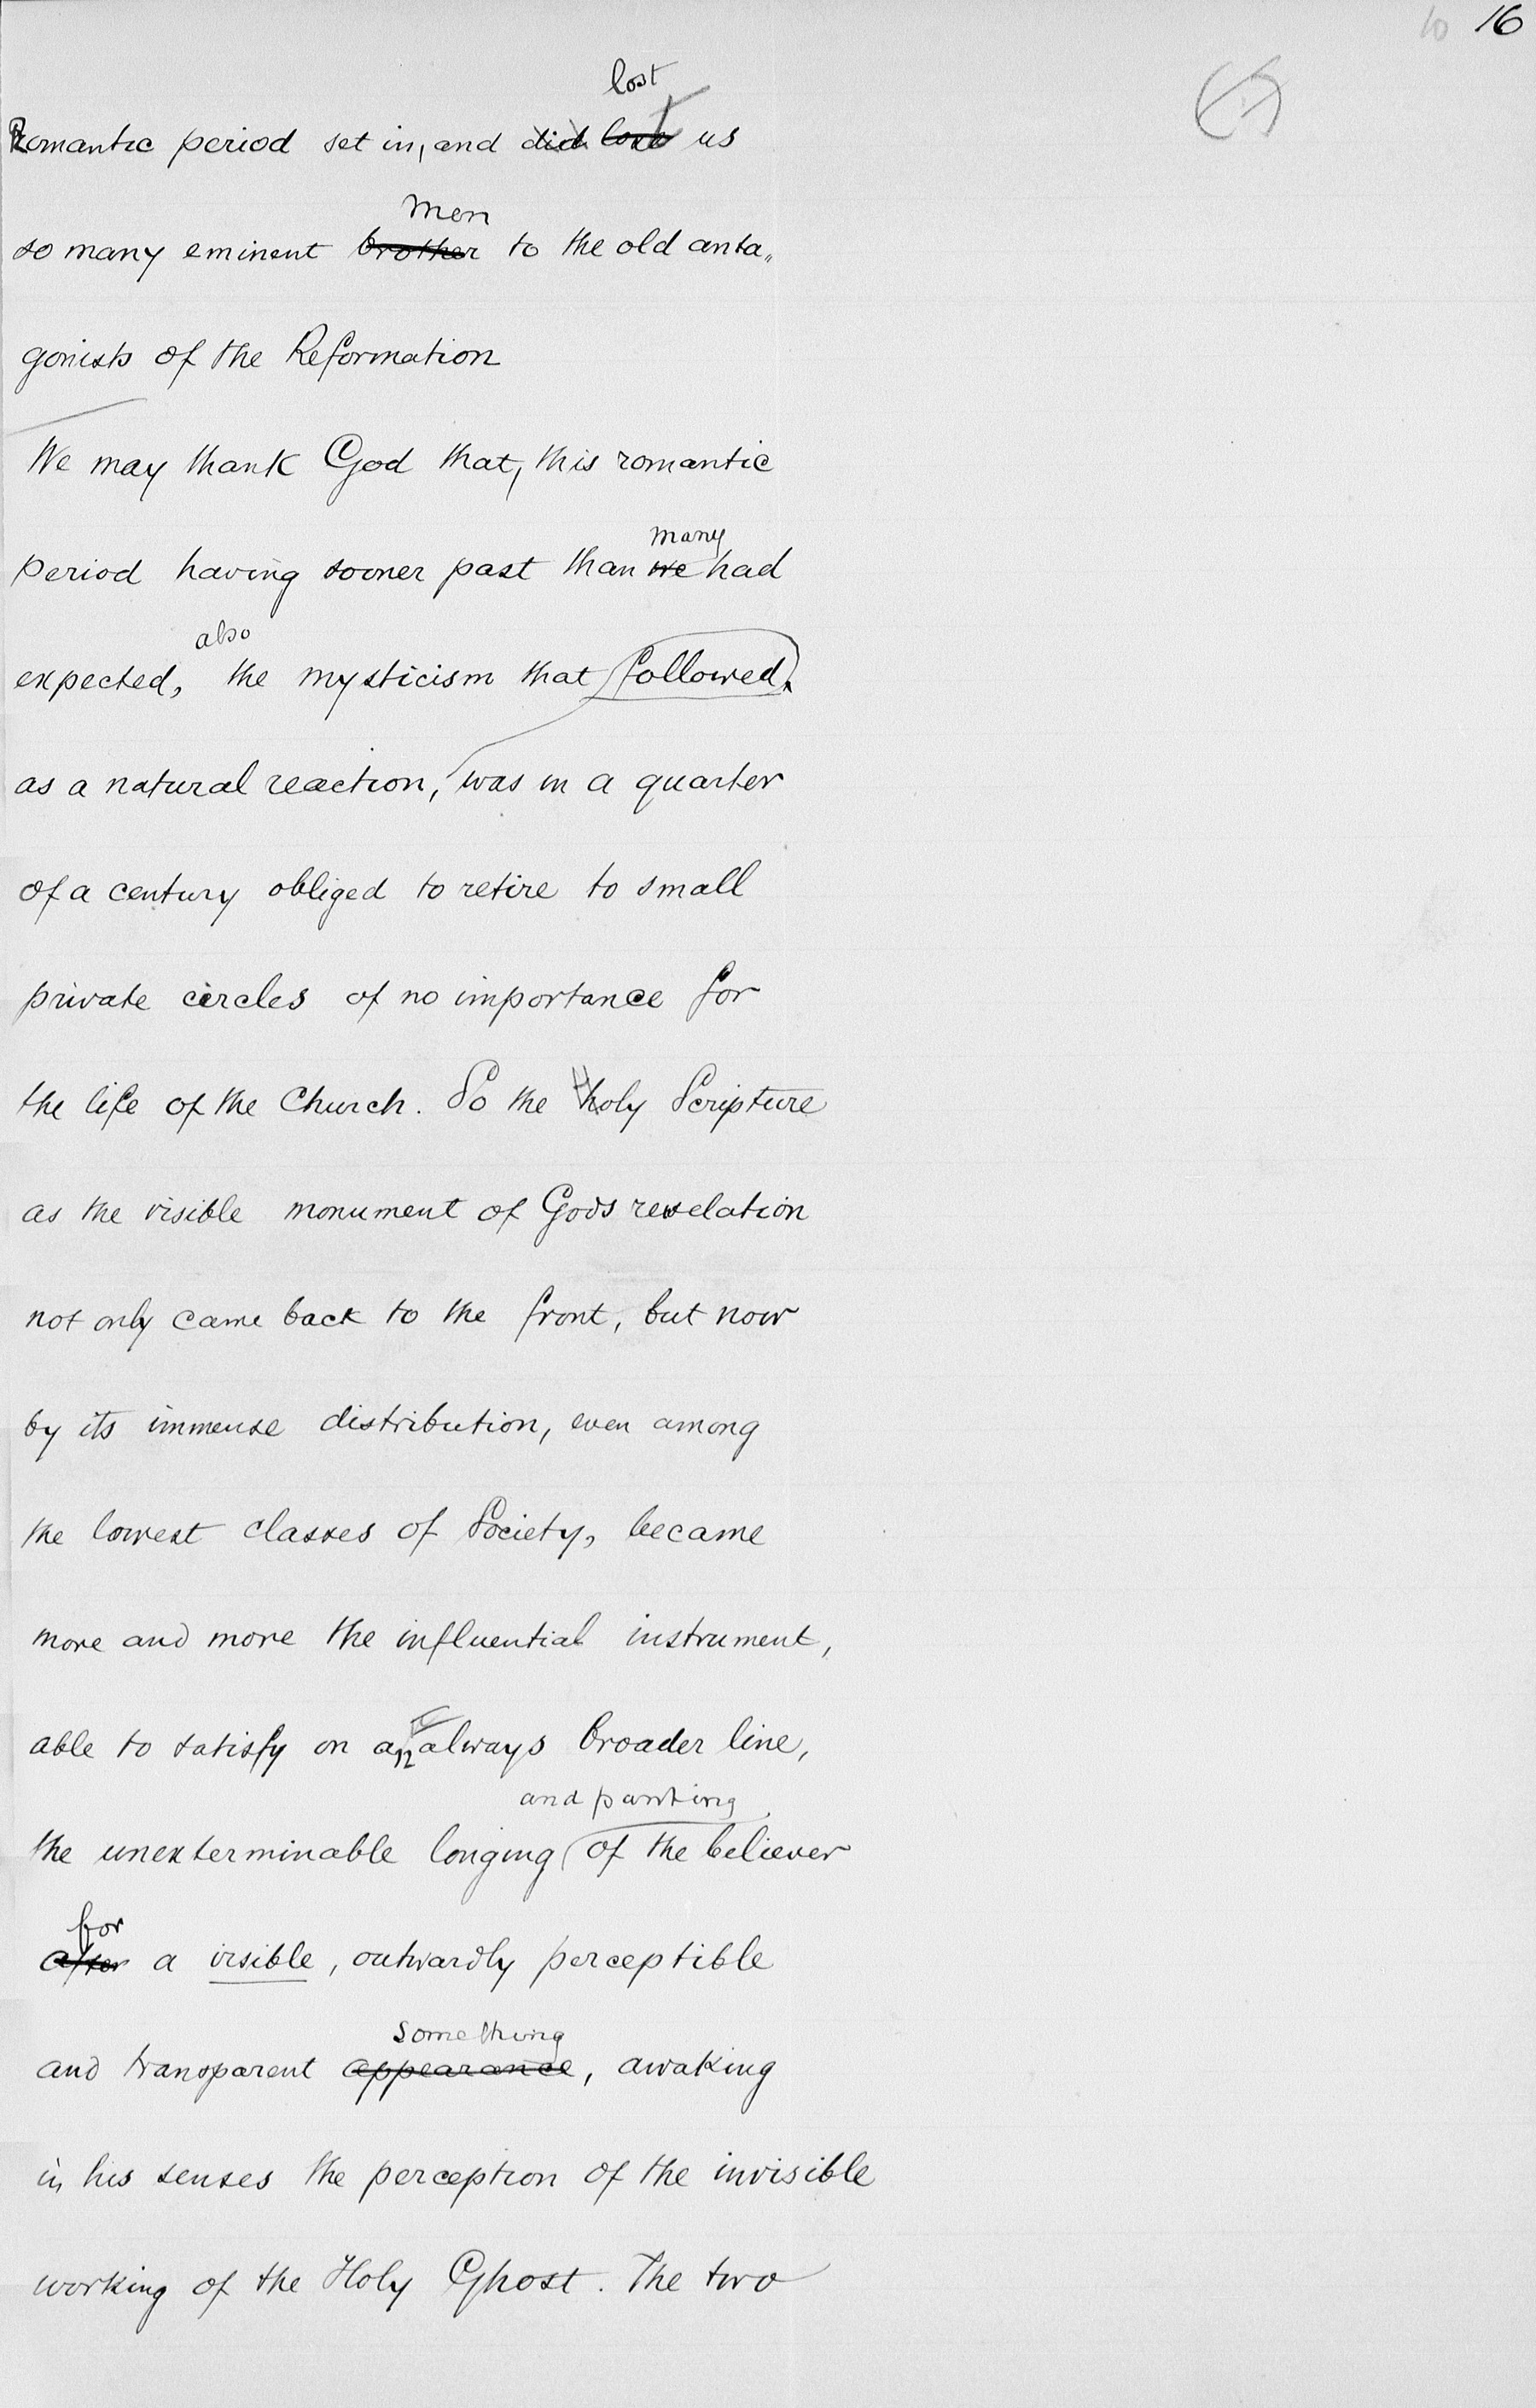 10 16
lost
Romantic period set in, and did lose us
men
so many eminent brother to the old anta„
gonists of the Reformation
We may thank God that, this romantic
many
period having sooner past than we had
also
expected, the mysticism that followed,
as a natural reaction, was in a quarter
of a century obliged to retire to small
private circles of no importance for
the life of the Church. So the Holy Scripture
as the visible monument of Gods revelation
not only came back to the front, but now
by its immense distribution, even among
the lowest classes of Society, became
more and more the influential instrument,
able to satisfy on an always broader line,
and panting
the unexterminable longing of the believer
for
after a visible, outwardly perceptible
something
and transparent appearance, awaking
in his senses the perception of the invisible
working of the Holy Ghost. The two